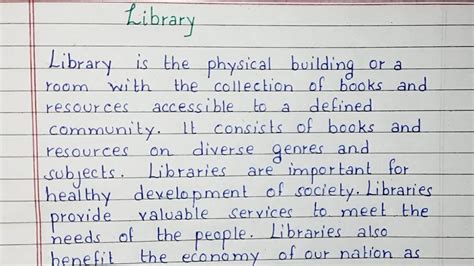 Library
Library is the physical building or a
room with the collection of books and
resources accessible to a defined
community. It consists of books and
resources on diverse genres and
subjects. Libraries are important for
healthy development of society. Libraries
provide valuable services to meet the
needs of the people. Libraries also
benefit the economy of our nation as